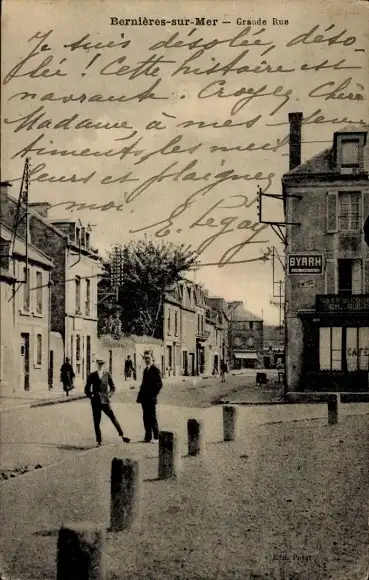 Bernières-sur-Mer — Grande Rue
Je suis désolée, déso-
lée ! Cette histoire est
navrante. Croyez Chère
Madame à mes sen
timents, les meil
leurs et plaignez
moi.
E. Legay
BYRRH
CAFÉ
Edit. Prvet